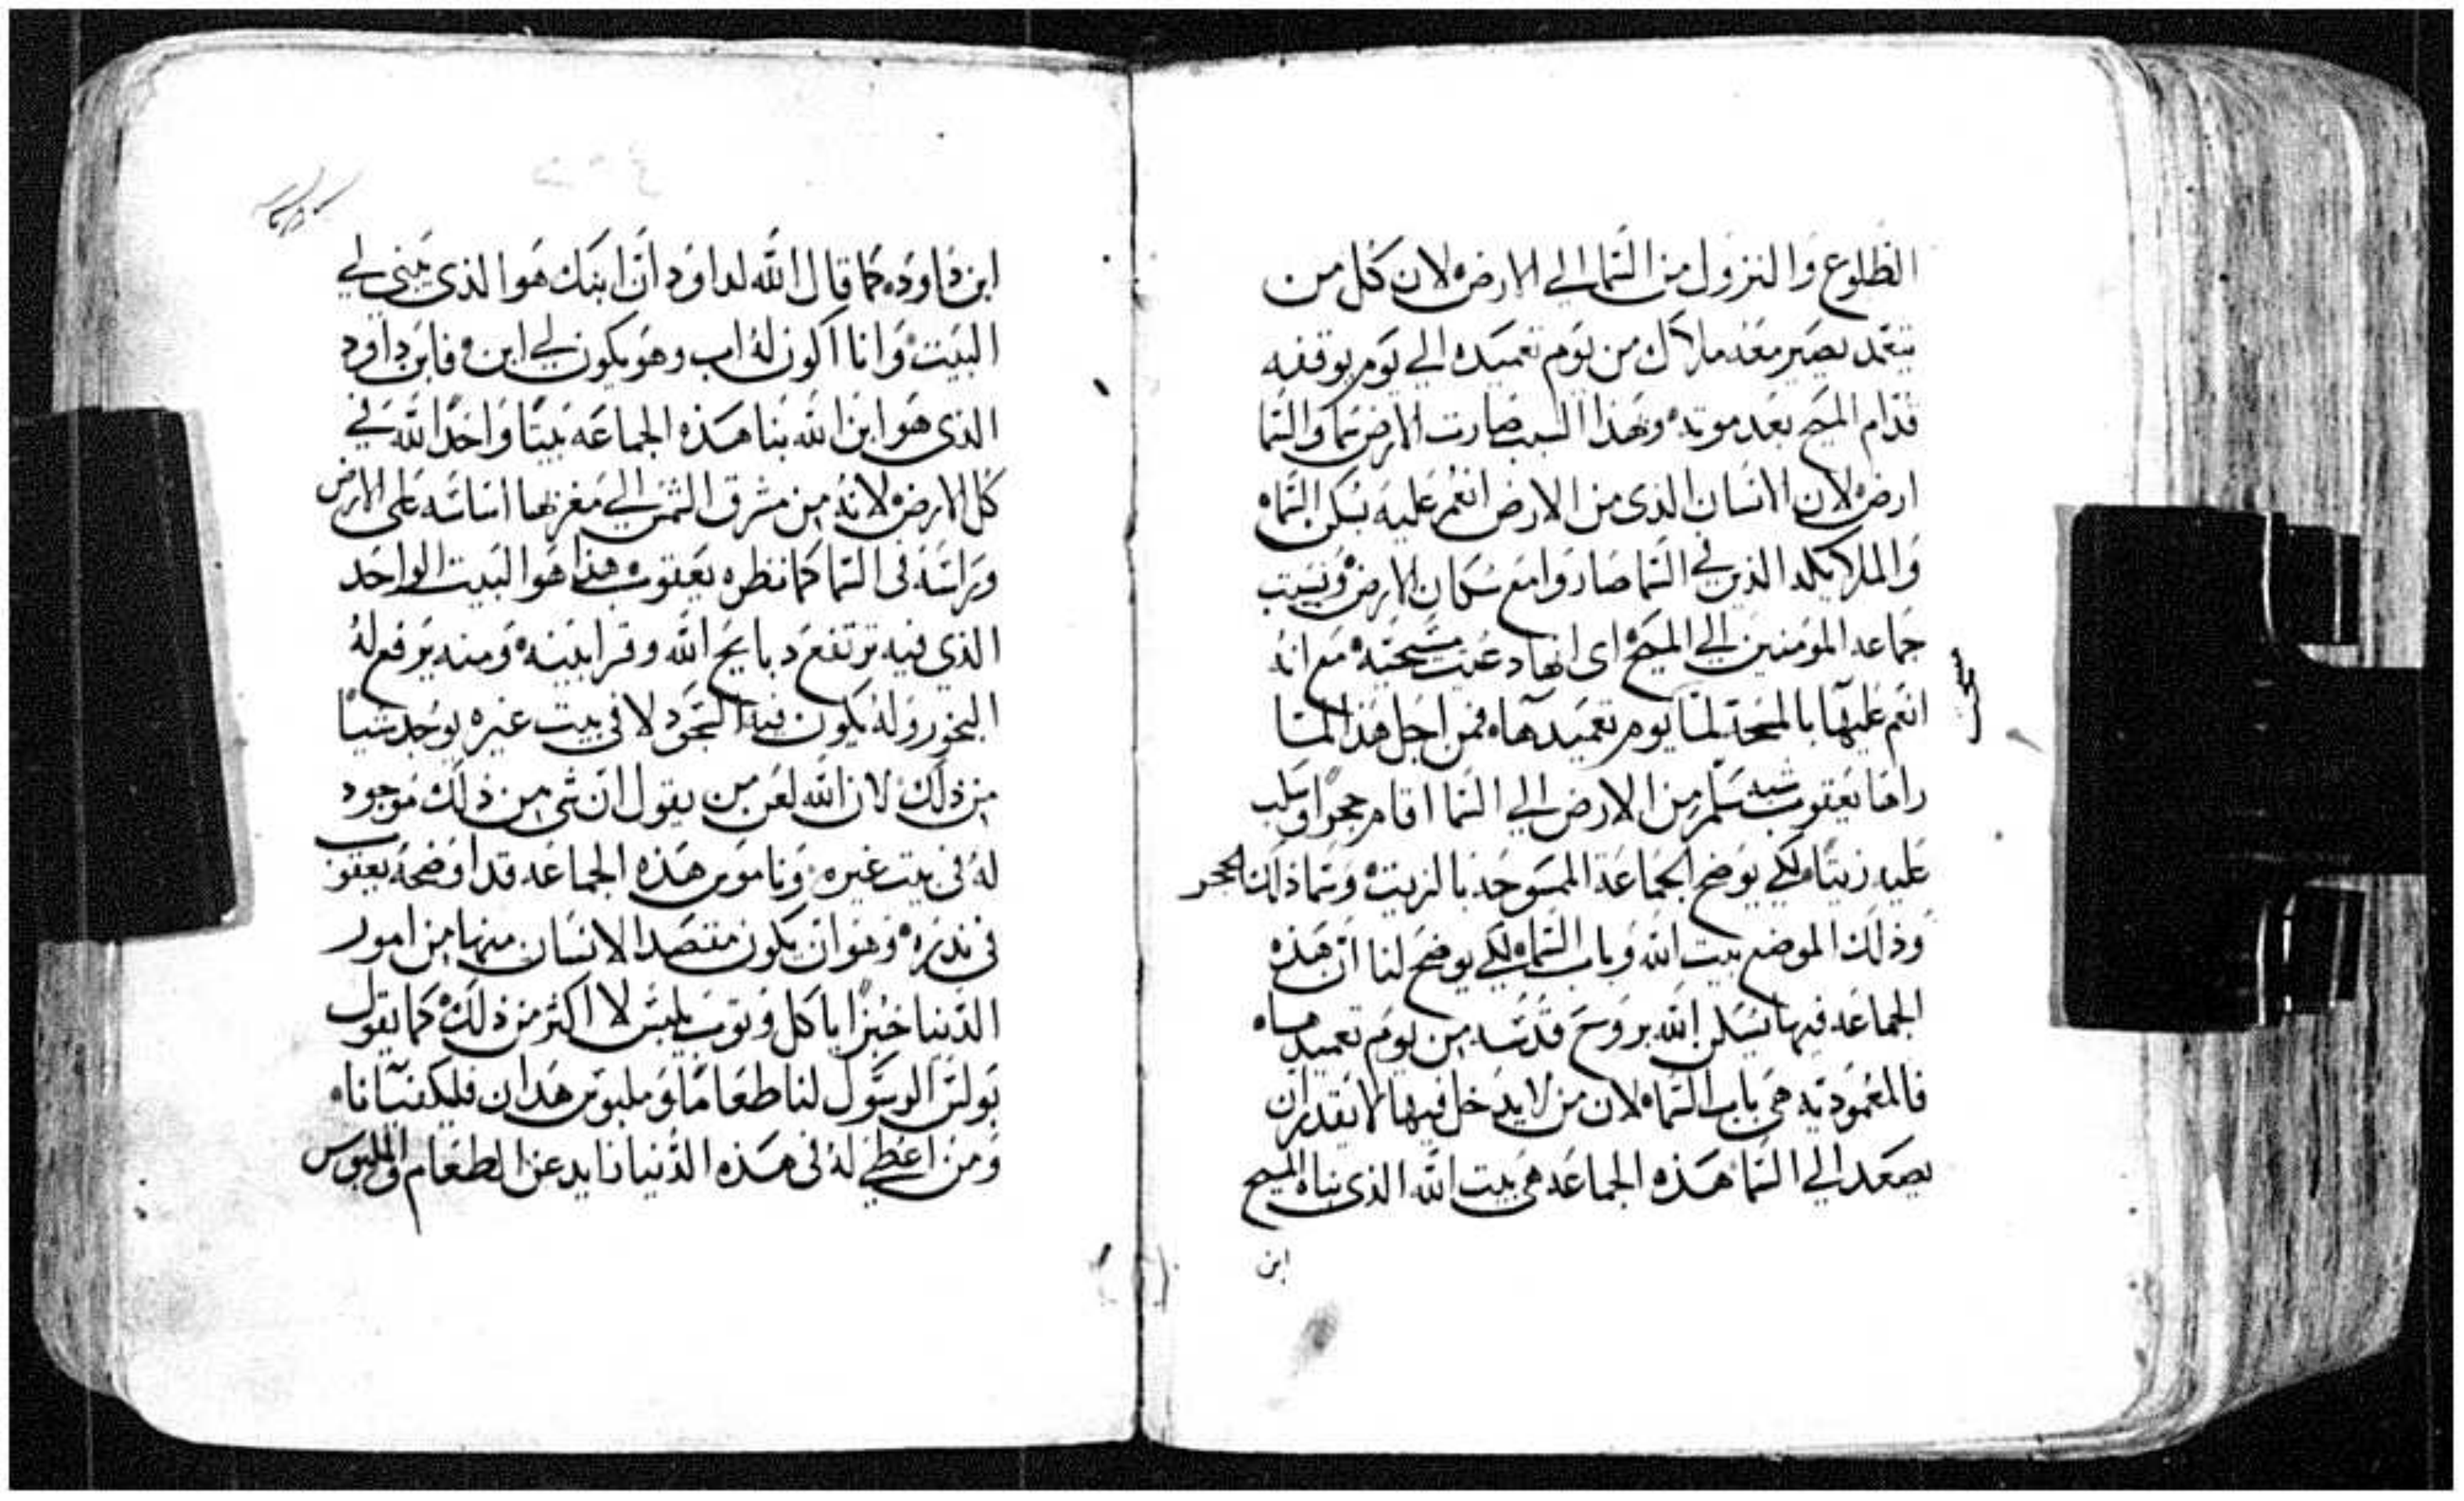 الطلوع والنزول من السما الي الارض لان كل من
يتعمد يصير معه ملاك من يوم تعميده الي يوم يوقفه
قدام المسيح بعد موته وبهذا السبب صارت الارض سما والسما
ارض لان الانسان الذي من الارض انعم عليه بسكن السماه
والملايكه الذين في السما صاروا مع سكان الارض ونسبت
جماعه المومنين الي المسيح اي انها دعيت مسيحيه مع انه
انعم عليها بالمسحة لما يوم تعميدها فمن اجل هذا لما
راها يعقوب شبه سلم من الارض الي السما اقام حجرا وسكب
عليه زيتا لكي يوضح الجماعة الممسوحه بالزيت وسما ذلك الحجر
وذلك الموضع بيت الله وباب السماه لكي يوضح لنا ان هذه
الجماعه فيها يسكن الله بروح قدسه من يوم تعميدها
فالمعموديه هي باب السماه لان من لا يدخل فيها لا يقدر ان
يصعد الي السما هذه الجماعه هي بيت الله الذي بناه المسيح
ابن
ابن داود كما قال الله لداود ان ابنك هو الذي يبني لي
البيت وانا اكون له اب وهو يكون لي ابن فابن داود
الذي هو ابن الله بنا هذه الجماعه بيتا واحدا لله في
كل الارض لانه من مشرق الشمس الي مغربها اساسه على الارض
وراسه في السما كما نظره يعقوب هذا هو البيت الواحد
الذي فيه ترتفع دبايح الله وقرابينه ومنه يرفع له
البخور وله يكون فيه السجود لا في بيت غيره يوجد شيا
من ذلك لان الله لعن من يقول ان شي من ذلك موجود
له في بيت غيره وناموس هذه الجماعه قد اوضحه يعقوب
في ندره وهو ان يكون مقتصد الانسان منها من امور
الدنيا خبزا ياكل وتوب يلبس لا اكثر من ذلك كما يقول
بولس الرسول لنا طعاما وملبوس هدان فليكفيانا
ومن اعطي له في هذه الدنيا زايد عن الطعام والملبوس